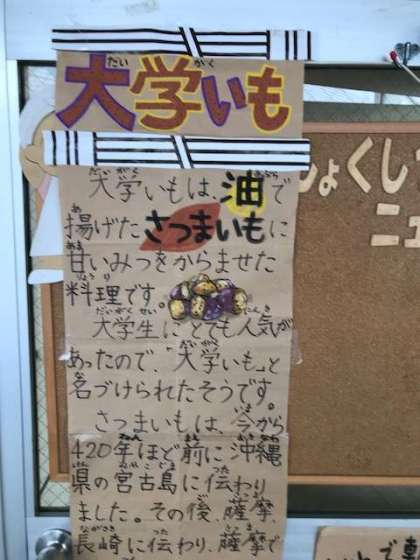 大学いも
大学いもは、油で
揚げたさつまいもに
甘いみつをからませた
料理です。
大学生にとても人気が
あったので、「大学いも」と
名づけられたそうです。
さつまいもは、今から
420年ほど前に沖縄
県の宮古島に伝わり
ました。その後、薩摩、
長崎に伝わり、薩摩で
しょくし
ニュ
とで